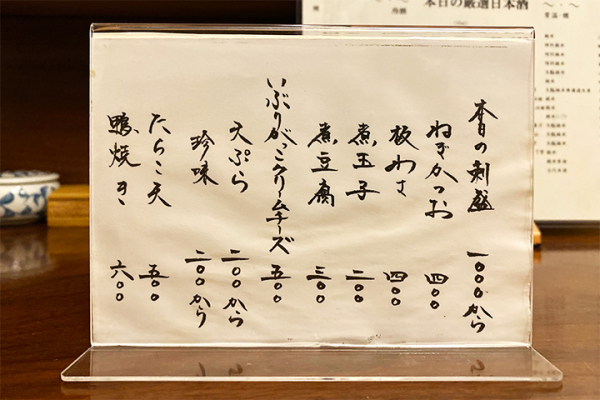 本日の刺盛 一〇〇〇から
ねぎかつお 四〇〇
板わさ 四〇〇
煮玉子 二〇〇
煮豆腐 三〇〇
いぶりがっこクリームチーズ 五〇〇
天ぷら 二〇〇から
珍味 二〇〇から
たらこ天 五〇〇
鴨焼き 六〇〇
本日の厳選日本酒